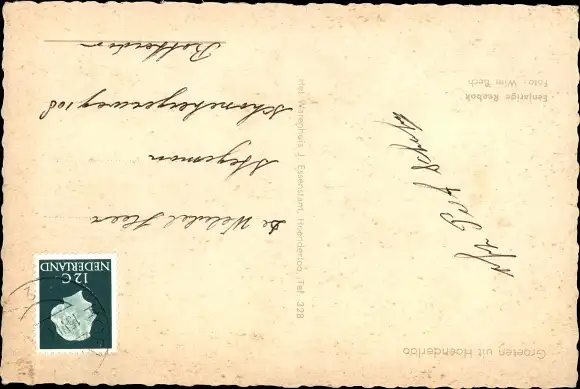 Groeten uit Hoenderloo
Eenjarige Reebok
Foto: Wim Bech
Het Warenhuis J. Essenstam, Hoenderloo, Tel. 328
NEDERLAND
12C
De Weledel Heer
Stegeman
Schonebergerweg 108
Rotterdam